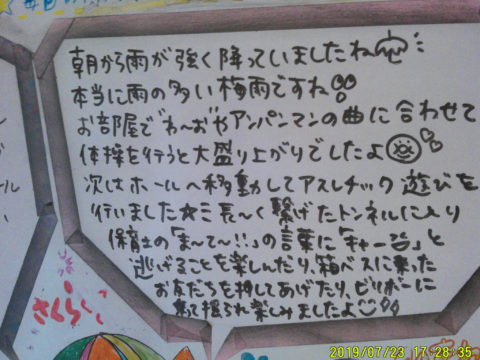 朝から雨が強く降っていましたね
本当に雨の多い梅雨ですね!!
お部屋で"わ〜お"やアンパンマンの曲に合わせて
体操を行うと大盛り上がりでしたよ
次はホールへ移動してアスレチック遊びを
行いました☆ミ長〜く繋げたトンネルに入り
保育士の「ま〜て〜!!」の言葉に「キャー
逃げることを楽しんだり、箱ベスに乗った
お友だちを押してあげたり、ビリボーに
乗て揺られ楽しみましたよ
さくらぐ
2019/07/23 17:28:35